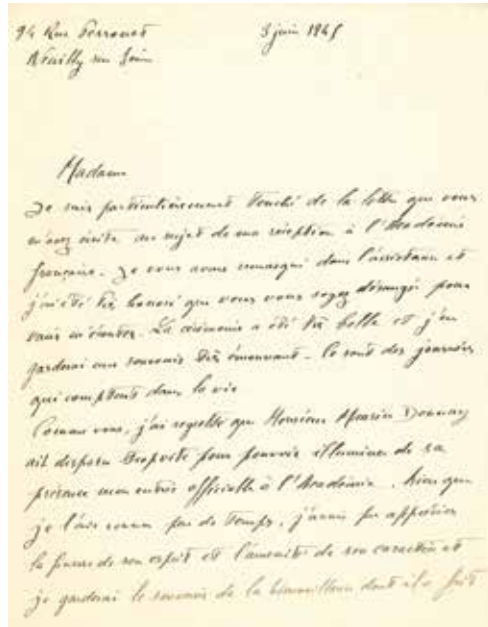 94 Rue Perronet
Neuilly sur Seine
3 juin 1945
Madame
Je suis particulièrement touché de la lettre que vous
m'avez écrite au sujet de ma réception à l'Académie
française. Je vous avais remarqué dans l'assistance et
j'ai été très honoré que vous vous soyez dérangée pour
venir m'écouter. La cérémonie a été très belle et j'en
garderai un souvenir très émouvant. Ce sont des journées
qui comptent dans la vie
Comme vous, j'ai regretté que Monsieur Maurice Donnay
ait disparu trop vite pour pouvoir illuminer de sa
présence mon entrée officielle à l'Académie. Bien que
je l'aie connu peu de temps, j'avais pu apprécier
la finesse de son esprit et l'aménité de son caractère et
je garderai le souvenir de la bienveillance dont il a fait